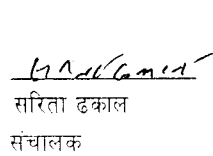 सरिता ढकाल
संचालक